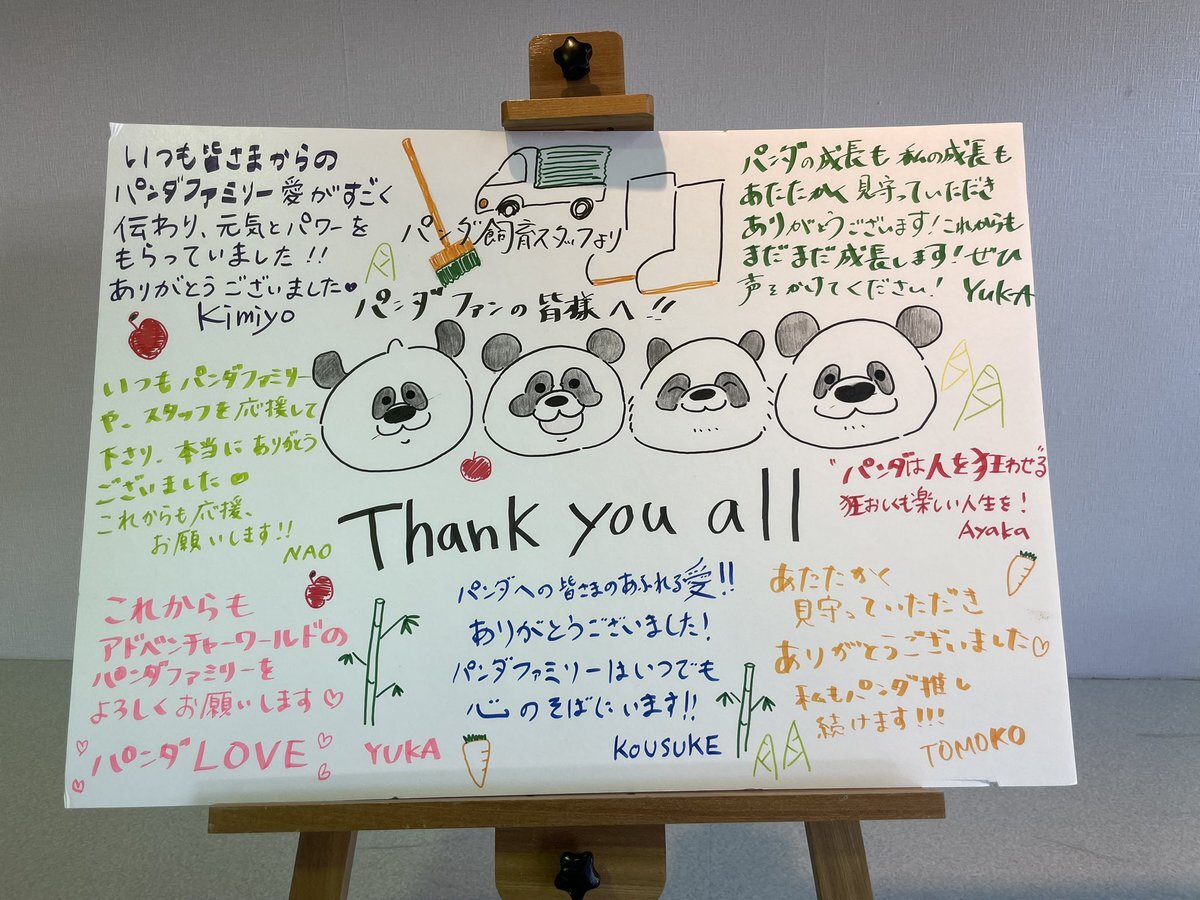 いつも皆さまからの
パンダファミリー愛がすごく
伝わり、元気とパワーを
もらっていました!!
ありがとうございました
Kimiyo
パンダ飼育スタッフより
パンダファンの皆様へ!!
パンダの成長も私の成長も
あたたかく見守っていただき
ありがとうございます!これからも
まだまだ成長します!ぜひ
声をかけてください! YUKA
いつもパンダファミリー
や、スタッフを応援して
下さり、本当にありがとう
ございました
これからも応援、
お願いします!!
NAO
"パンダは人を狂わせる"
狂おしくも楽しい人生を!
Ayaka
Thank you all
これからも
アドベンチャーワールドの
パンダファミリーを
よろしくお願いします♡
パンダLOVE
YUKA
パンダへの皆さまのあふれる愛!!
ありがとうございました!
パンダファミリーはいつでも
心のそばにいます!!
KOUSUKE
あたたかく
見守っていただき
ありがとうございました♡
私もパンダ推し
続けます!!!
TOMOKO